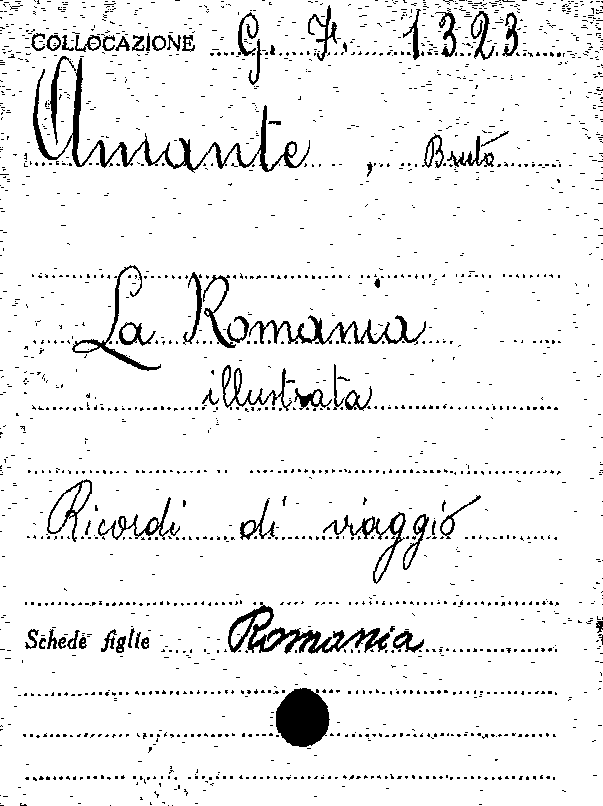 COLLOCAZIONE G. F. 1323
Amante, Bruto
La Romania
illustrata
Ricordi di viaggio
Schede figlie Romania